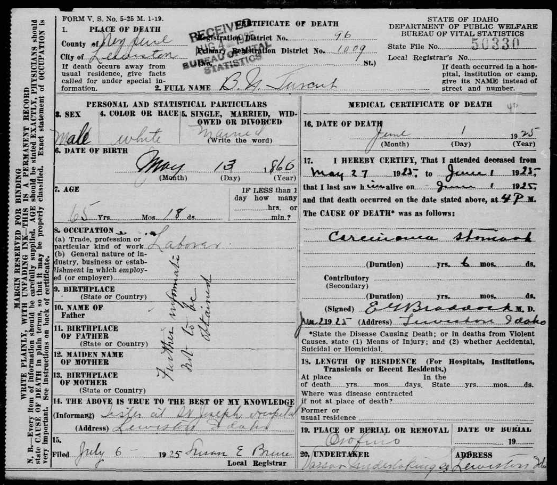 FORM V. S. No. 5-25 M. 1-19.
CERTIFICATE OF DEATH
STATE OF IDAHO
DEPARTMENT OF PUBLIC WELFARE
BUREAU OF VITAL STATISTICS
1. PLACE OF DEATH
County of Nez Perce
City of Lewiston
RECEIVED
BUREAU OF VITAL STATISTICS
Registration District No. 96
Primary Registration District No. 1009
No. St.)
State File No. 50330
Local Registrar's No.
If death occurs away from usual residence, give facts called for under special information.
If death occurred in a hospital, institution or camp, give its NAME instead of street and number.
2. FULL NAME B. M.
PERSONAL AND STATISTICAL PARTICULARS
3. SEX
Male
4. COLOR OR RACE
white
5. SINGLE, MARRIED, WIDOWED OR DIVORCED
Married
(Write the word)
6. DATE OF BIRTH
May 13, 1860
(Month) (Day) (Year)
7. AGE
65 Yrs. Mos. 18 ds.
IF LESS than 1 day how many hrs. or min.?
8. OCCUPATION
(a) Trade, profession or particular kind of work Laborer
(b) General nature of industry, business or establishment in which employed (or employer)
9. BIRTHPLACE
(State or Country)
10. NAME OF Father
11. BIRTHPLACE OF FATHER
(State or Country)
12. MAIDEN NAME OF MOTHER
13. BIRTHPLACE OF MOTHER
(State or Country)
Further information
not to be
obtained
14. THE ABOVE IS TRUE TO THE BEST OF MY KNOWLEDGE
(Informant) Sister at St Joseph Hospital
Lewiston Idaho
15.
Filed July 6 1925 Susan E Bruce
Local Registrar
MEDICAL CERTIFICATE OF DEATH
16. DATE OF DEATH
June 1 1925
(Month) (Day) (Year)
17. I HEREBY CERTIFY, That I attended deceased from
May 27 1925 to June 1 1925
that I last saw him alive on June 1 1925
and that death occurred on the date stated above, at 4 P M.
The CAUSE OF DEATH* was as follows:
Carcinoma Stomach
(Duration) yrs. 6 mos. ds.
Contributory
(Secondary)
(Duration) yrs. mos. ds.
(Signed) E G Braddock M. D.
1925 (Address) Lewiston Idaho
*State the Disease Causing Death; or in deaths from Violent Causes, state (1) Means of Injury; and (2) whether Accidental, Suicidal or Homicidal.
18. LENGTH OF RESIDENCE (For Hospitals, Institutions, Transients or Recent Residents.)
At place of death yrs. mos. days. In the State yrs. mos. days
Where was disease contracted if not at place of death?
Former or usual residence
19. PLACE OF BURIAL OR REMOVAL
Orofino
DATE OF BURIAL
19
20. UNDERTAKER
Vassar Undertaking Co
ADDRESS
Lewiston Ida
MARGIN RESERVED FOR BINDING
WRITE PLAINLY, WITH UNFADING INK—THIS IS A PERMANENT RECORD.
N. B.—Every item of information should be carefully supplied. AGE should be stated EXACTLY, PHYSICIANS should state CAUSE OF DEATH in plain terms, so that it may be properly classified. Exact statement of OCCUPATION is very important. See instructions on back of certificate.